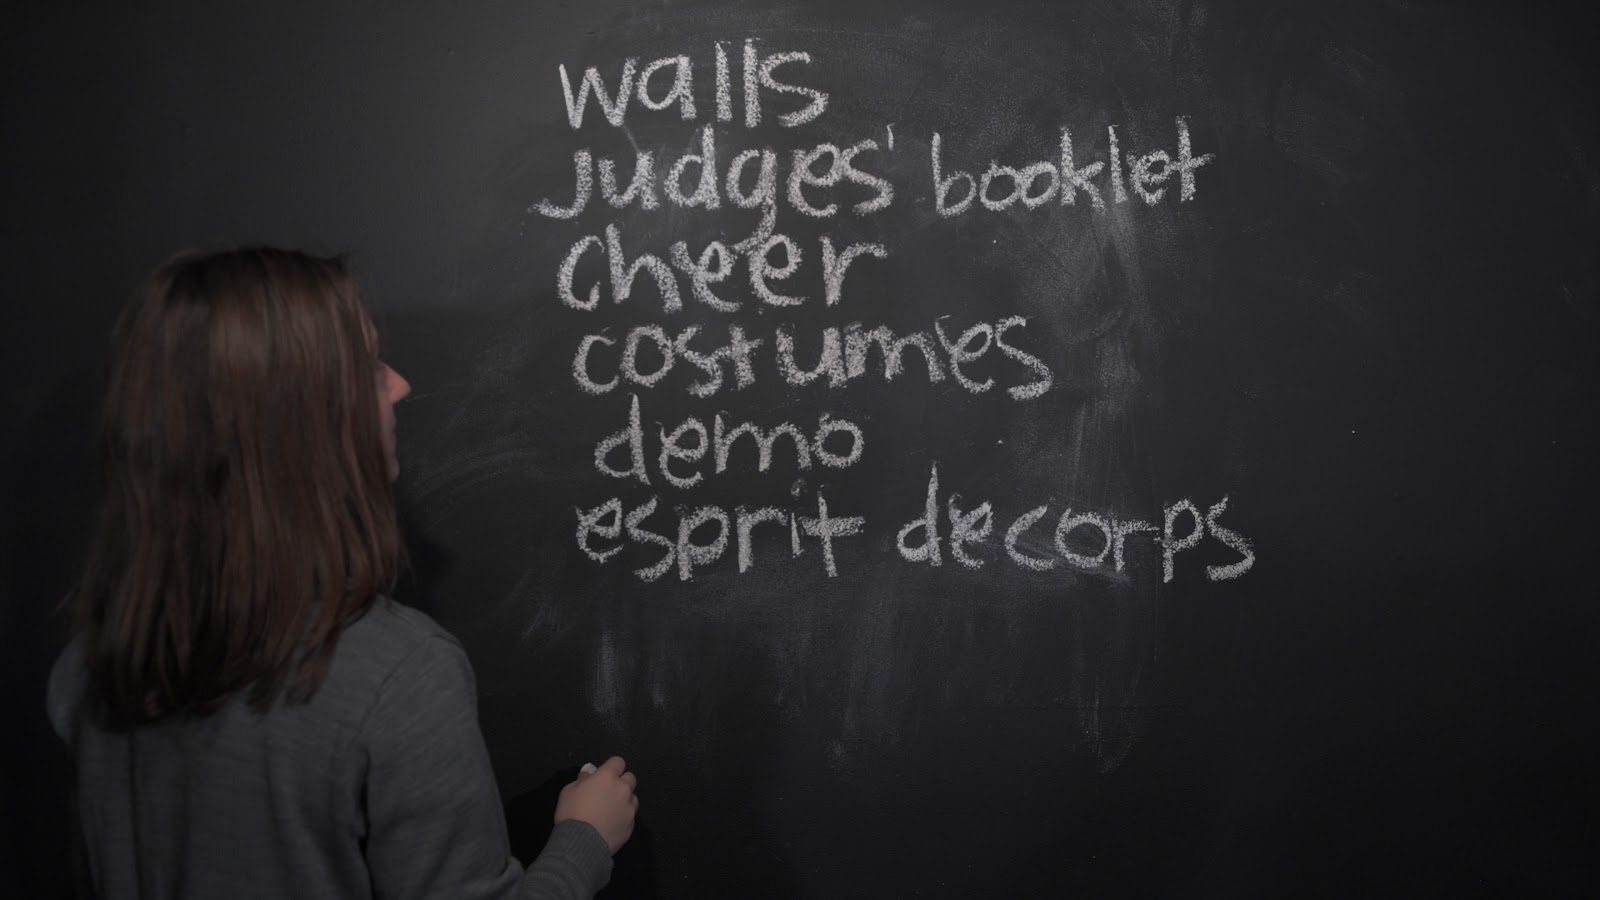 walls
judges' booklet
cheer
costumes
demo
esprit decorps